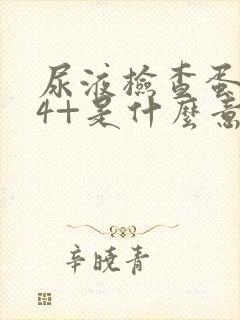 尿液檢查蛋
4+是什麼意
辛曉青